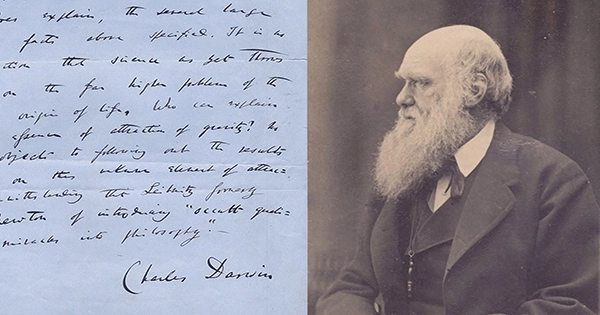 oes explain, the several large
facts above specified. It is no
ction that science as yet throws
on the far higher problem of the
origin of life. Who can explain
essence of attraction of gravity? No
objects to following out the results
on this unknown element of attrac-
withstanding that Leibnitz formerly
ewton of introducing "occult quali-
miracles into philosophy".—
Charles Darwin